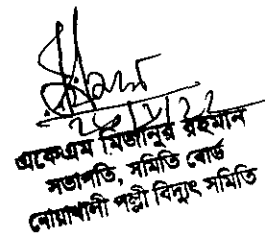 একেএম মিজানুর রহমান
সভাপতি, সমিতি বোর্ড
নোয়াখালী পল্লী বিদ্যুৎ সমিতি